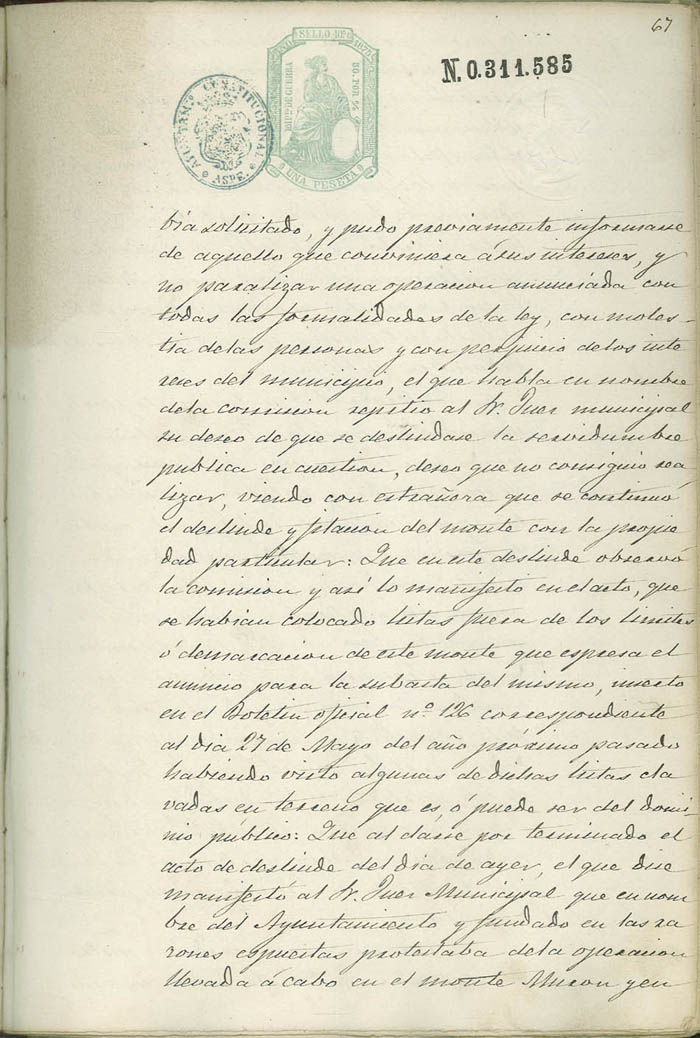 67
SELLO 10º 1875
IMPtº DE GUERRA
50 POR %
UNA PESETA
N. 0.311.585
AYUNTAMtº CONSTITUCIONAL
ASPE.
bia solicitado, y pudo previamente informarse
de aquello que conviniera á sus intereses, y
no paralizar una operacion anunciada con
todas las formalidades de la ley, con moles-
tia de las personas y con perjuicio de los inte
reses del municipio, el que habla en nombre
de la comision repitio al Sr. Juez municipal
su deseo de que se deslindase la servidumbre
publica en cuestion, deseo que no consiguio rea
lizar, viendo con estrañeza que se continuó
el deslinde y fitacion del monte con la propie
dad particular: Que en este deslinde observó
la comision y asi lo manifesto en el acto, que
se habian colocado hitas fuera de los limites
ó demarcacion de este monte que espresa el
anuncio para la subasta del mismo, inserto
en el Boletin oficial nº 126 correspondiente
al dia 27 de Mayo del año próximo pasado
habiendo visto algunas de dichas hitas cla
vadas en terreno que es, ó puede ser del domi-
nio público: Que al darse por terminado el
acto de deslinde del dia de ayer, el que dice
manifestó al Sr. Juez Municipal que en nom
bre del Ayuntamiento y fundado en las ra
zones espuestas protestaba de la operacion
llevada á cabo en el monte Muron y en